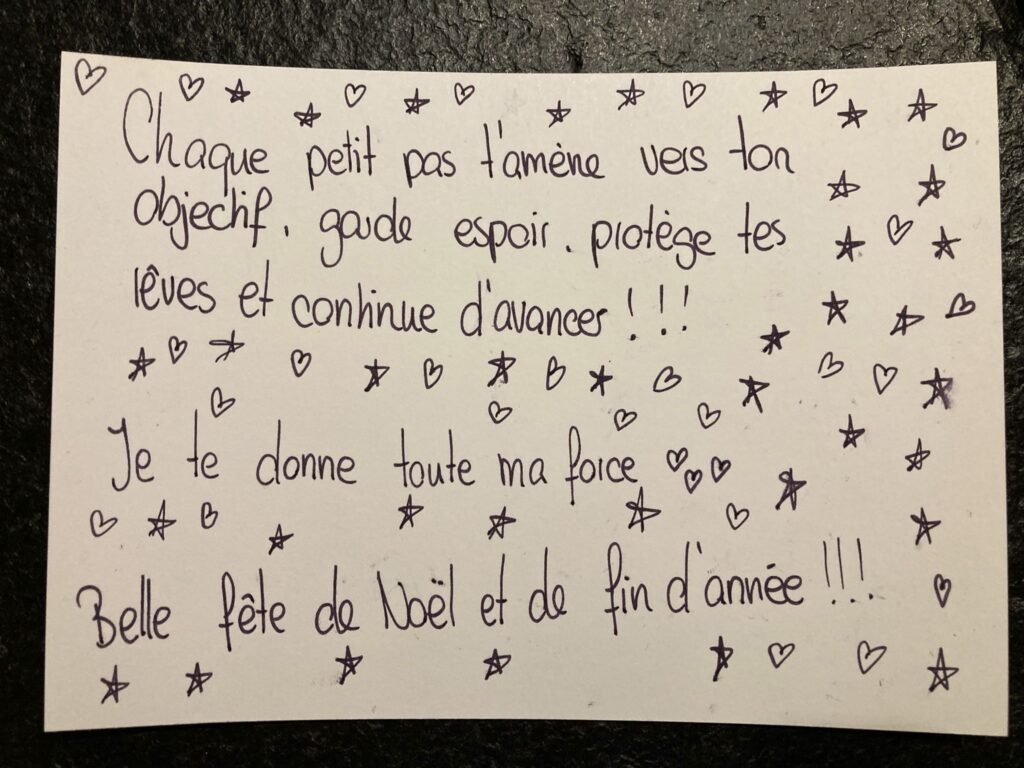 Chaque petit pas t'amène vers ton
objectif. garde espoir. protège tes
rêves et continue d'avancer !!!
Je te donne toute ma force
Belle fête de Noël et de fin d'année !!!